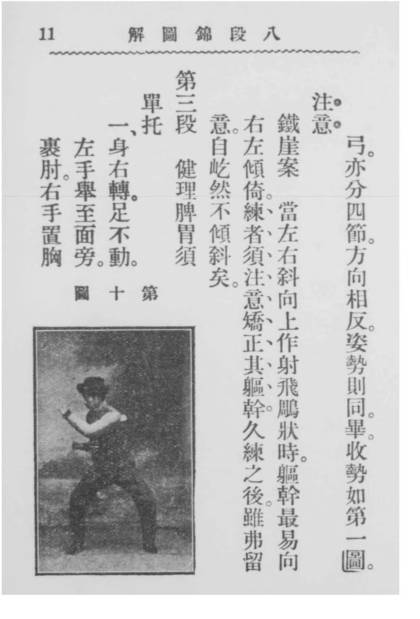 八段錦圖解
11
弓。亦分四節。方向相反。姿勢則同。畢。收勢如第一圖。
注意
鐵崖案 當左右斜向上作射飛鵰狀時。軀幹最易向
右左傾倚。練者須注意矯正其軀幹。久練之後。雖弗留
意。自屹然不傾斜矣。
第三段 健理脾胃須
單托
一、身右轉。足不動。
左手舉至面旁。
裹肘。右手置胸
第十圖